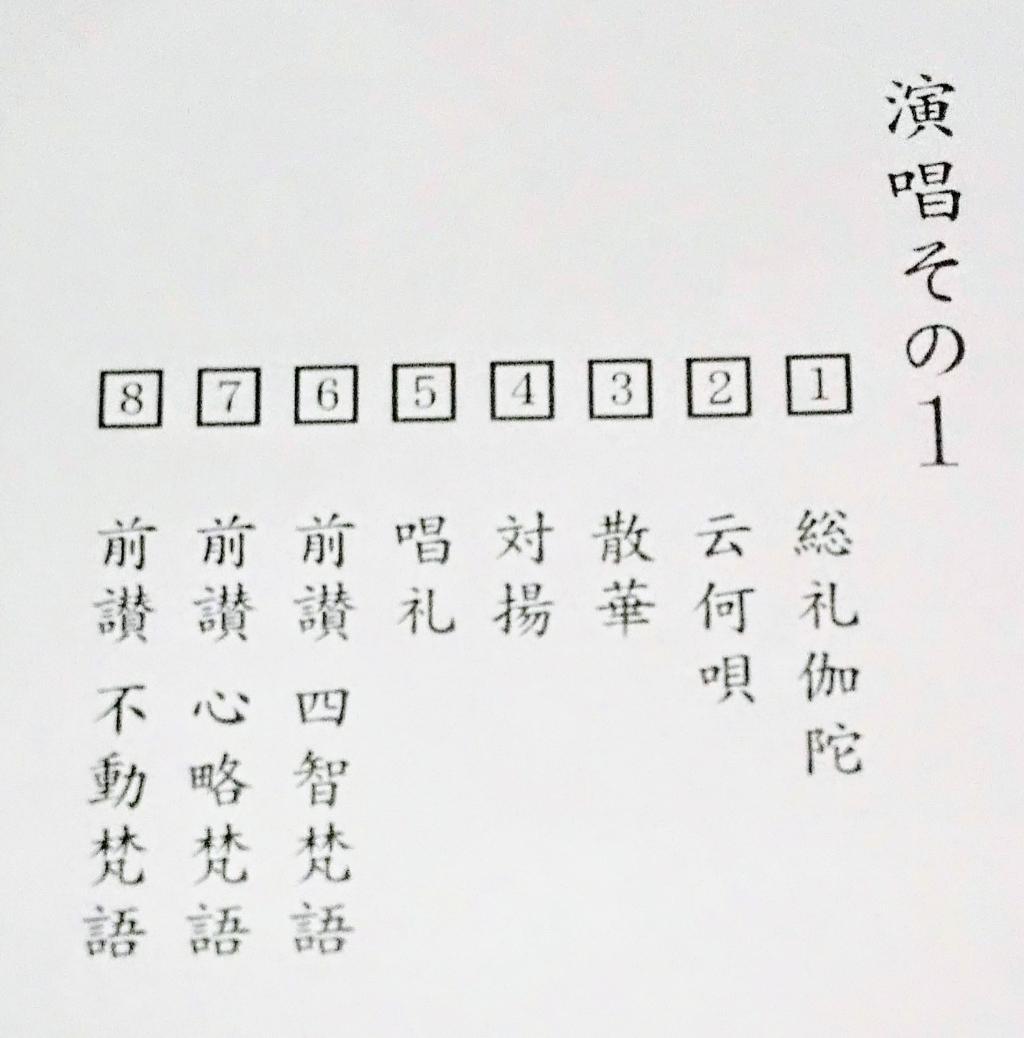 演唱その1
1 総礼伽陀
2 云何唄
3 散華
4 対揚
5 唱礼
6 前讃 四智梵語
7 前讃 心略梵語
8 前讃 不動梵語